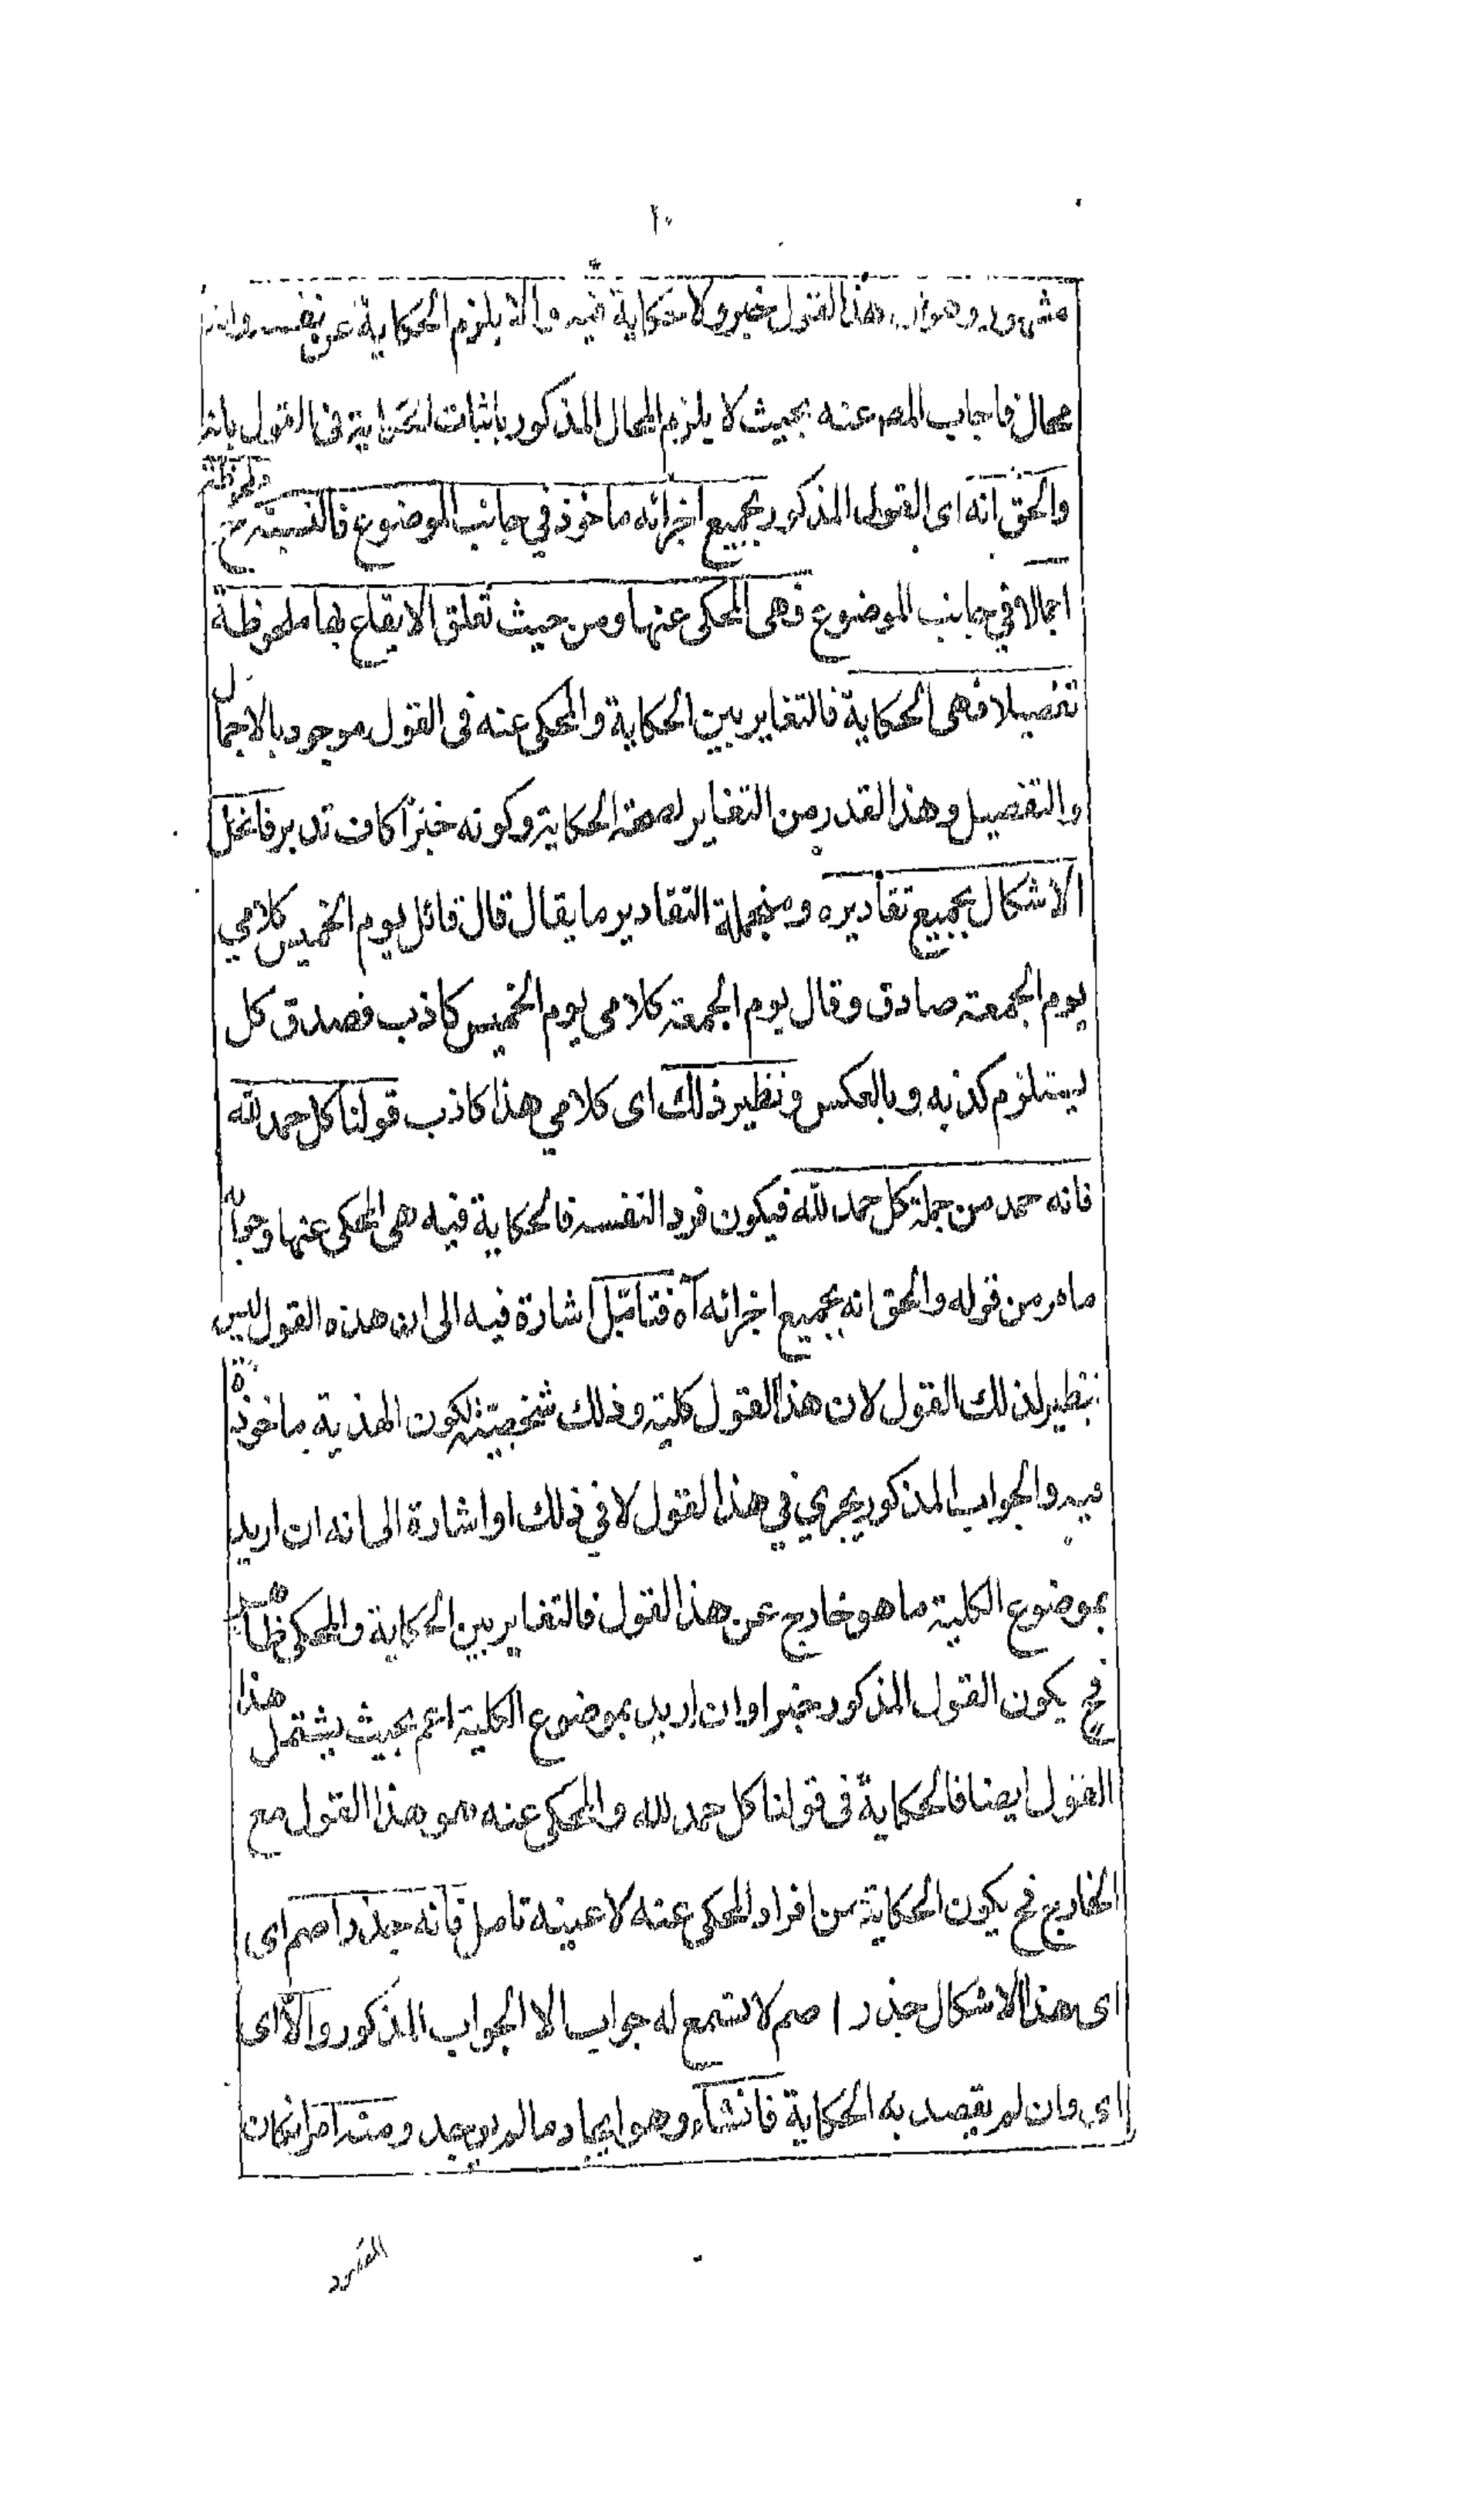 ١٠
مشهور وهو ان هذا القول خبر ولا حكاية فيه والا يلزم الحكاية عن نفسه وانه
محال فاجاب المصم عنه بحيث لا يلزم المحال المذكور باثبات الحكاية فى القول بانه
والحق انه اى القول المذكور بجميع اجزائه ماخوذ في جانب الموضوع فالنسبته ح ملحوظة
اجمالا في جانب الموضوع فهى المحكى عنها ومن حيث تعلق الايقاع بها ملحوظة
تفصيلا فهى الحكاية فالتغاير بين الحكاية والمحكى عنه فى القول موجود بالاجمال
والتفصيل وهذا القدر من التغاير لصحته الحكاية وكونه خبرًا كاف تدبر فانحل
الاشكال بجميع تقاديره ومنجملة التقادير ما يقال قال قائل يوم الخميس كلامي
يوم الجمعة صادق وقال يوم الجمعة كلامى يوم الخميس كاذب فصدق كل
يستلزم كذبه وبالعكس ونظير ذلك اى كلامي هذا كاذب قولنا كل حمد لله
فانه حمد من جملة كل حمد لله فيكون فردا لنفسه فالحكاية فيه هى المحكى عنها وجوابه
ما مر من قوله والحق انه بجميع اجزائه آه فتأمّل اشارة فيه الى ان هذه القول ليس
بنظير لذلك القول لان هذا القول كلية وذلك شخصية لكون الهذية ماخوذة
فيه والجواب المذكور يجري في هذا القول لا في ذلك او اشارة الى انه ان اريد
بموضوع الكلية ما هو خارج عن هذا القول فالتغاير بين الحكاية والمحكى ظاهر
فح يكون القول المذكور خبرا وان اريد بموضوع الكلية اعم بحيث يشتمل هذا
القول ايضا فالحكاية فى قولنا كل حمد لله والمحكى عنه هو هذا القول مع
الخارج فح يكون الحكاية من افراد المحكى عنه لا عينه تامل فانه جذر اصم اى
اى هذا الاشكال جذر اصم لا تسمع له جواب الا الجواب المذكور والّا اى
اى وان لم يقصد به الحكاية فانشاء وهو ايجاد ما لم يوجد ومنه امر انكان